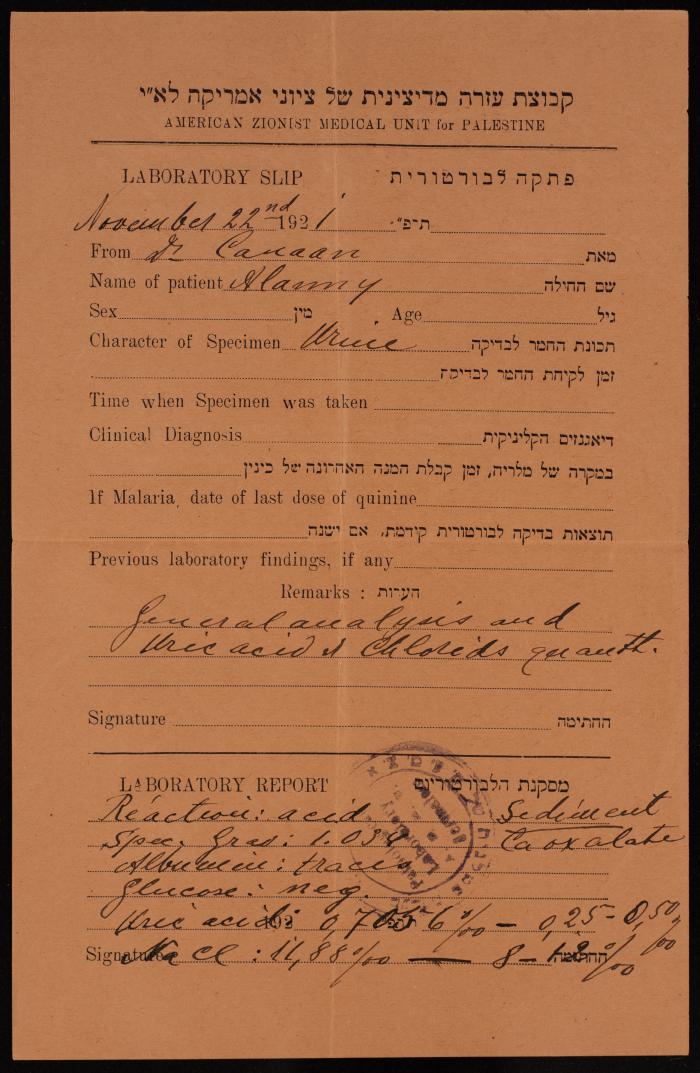 קבוצת עזרה מדיצינית של ציוני אמריקה לא״י
AMERICAN ZIONIST MEDICAL UNIT for PALESTINE
LABORATORY SLIP פתקה לבורטורית
November 22nd 1921 תרפ״
From Dr Canaan מאת
Name of patient Alamy שם החולה
Sex מין Age גיל
Character of Specimen Urine תכונת החמר לבדיקה
זמן לקיחת החמר לבדיקה
Time when Specimen was taken
Clinical Diagnosis דיאגנוזים הקליניקית
במקרה של מלריה, זמן קבלת המנה האחרונה של כינין
If Malaria, date of last dose of quinine
תוצאות בדיקה לבורטורית קודמת, אם ישנה
Previous laboratory findings, if any
Remarks : הערות
General analysis and
Uric acid & Chlorids quantt.
Signature החתימה
LABORATORY REPORT מסקנת הלבורטוריום
Reaction: acid Sediment
Spec. Grav: 1.034 Ca oxalate
Albumin: traces
Glucose: neg
Uric acid: 192 0,7056‰ — 0,25-0,50‰
Signature Na Cl : 11,88‰ — 8-12‰ החתימה
Laboratory
Jerusalem